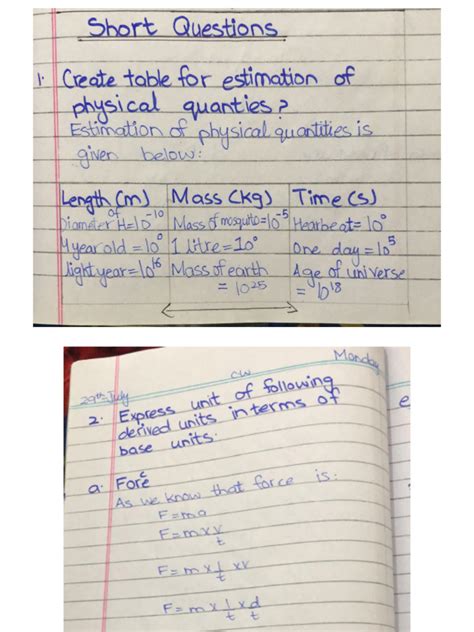 Short Questions
1. Create table for estimation of
physical quanties?
Estimation of physical quantities is
given below:
Length (m) | Mass (kg) | Time (s)
Diameter of H=10⁻¹⁰ | Mass of mosquito=10⁻⁵ | Hearbeat=10⁰
4 year old = 10⁰ | 1 litre = 10⁰ | One day = 10⁵
light year = 10¹⁶ | Mass of earth | Age of universe
= 10²⁵ | = 10¹⁸
Monday
29th July
cw
2. Express unit of following
derived units in terms of
base units:
a. Force
As we know that force is:
F = ma
F = m × v/t
F = m × 1/t × v
F = m × 1/t × d/t